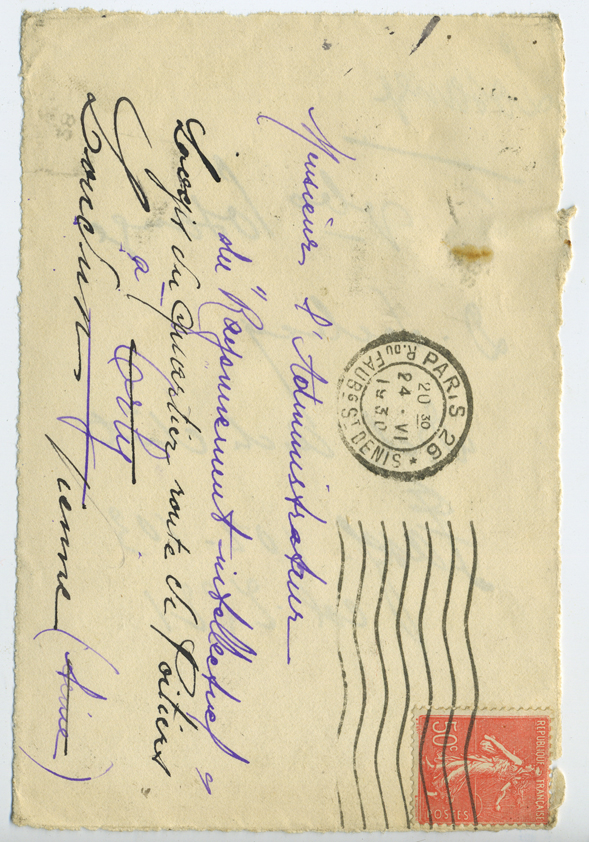 Monsieur l'Administrateur
du "Rayonnement intellectuel"
Logis du Quartier route de Poitiers
à
Loudun Vienne (Aisne)
PARIS 26
R. DU FAUBG ST DENIS
20 30
24 · VI
1930
REPUBLIQUE FRANÇAISE
50c
POSTES